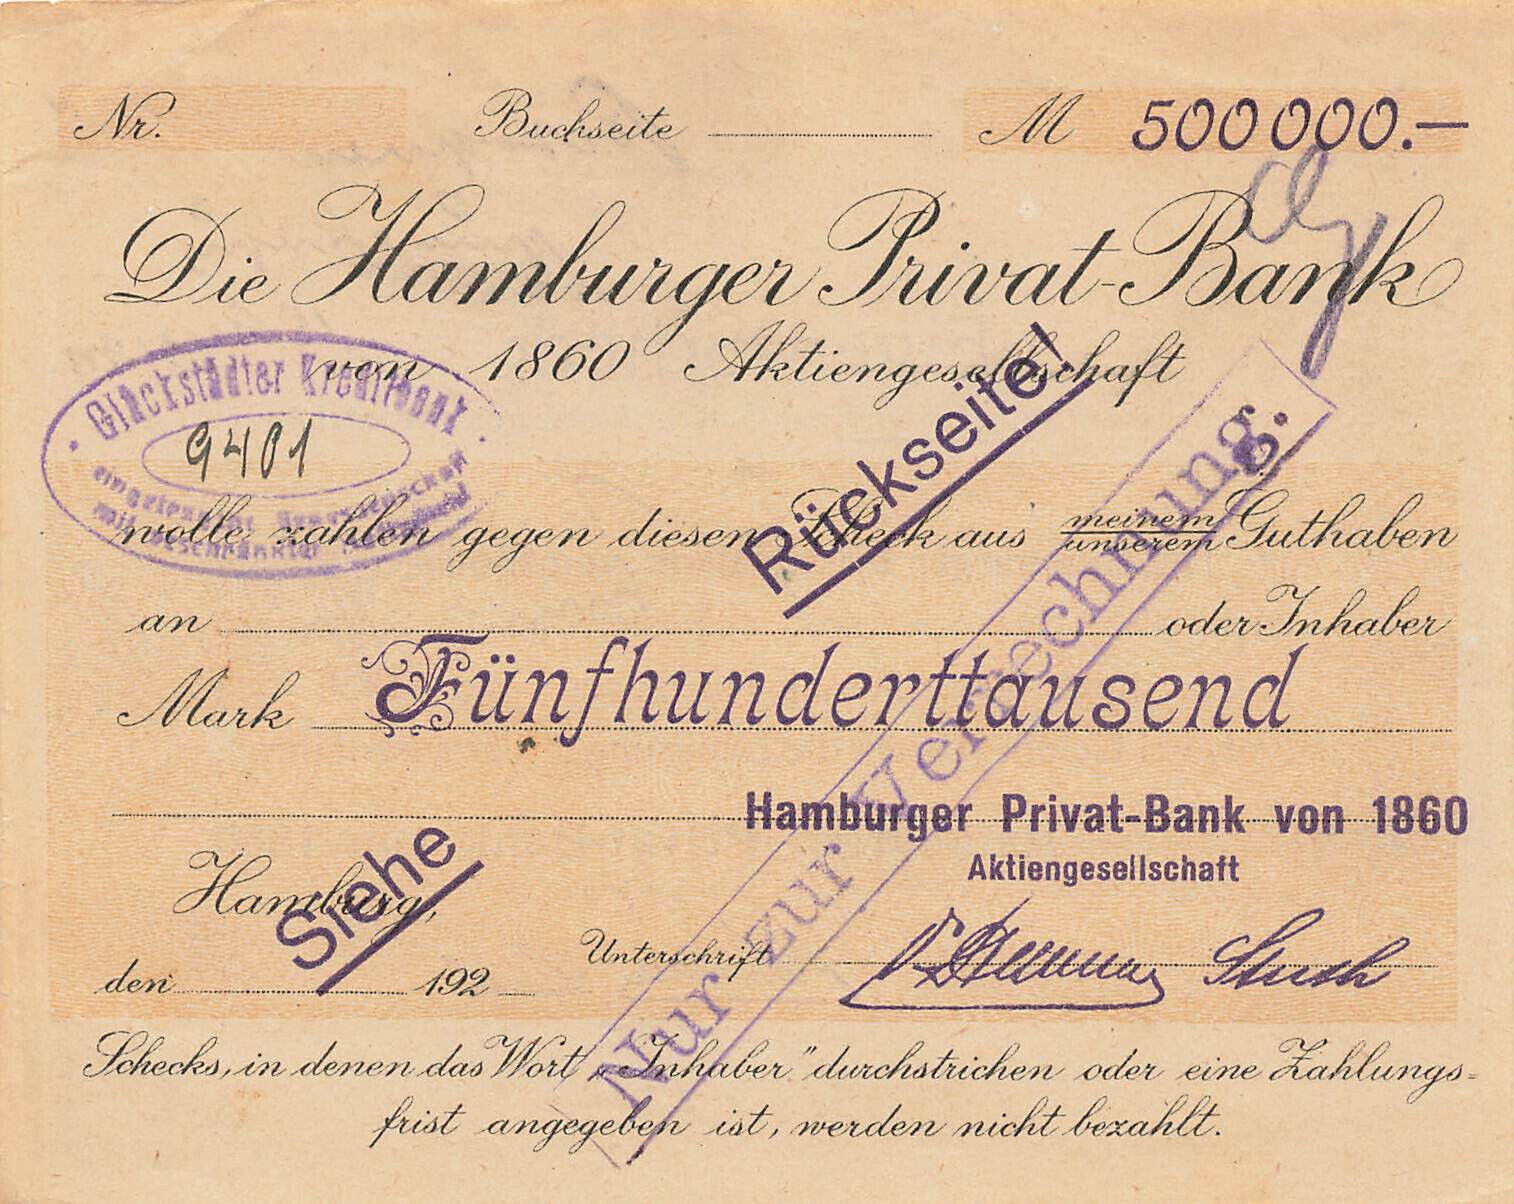 Nr. Buchseite M 500 000.—
Die Hamburger Privat-Bank
von 1860 Aktiengesellschaft
Glückstädter Kreditbank
9401
eingetragene Genossenschaft
mit beschränkter
wolle zahlen gegen diesen Scheck aus meinem Guthaben
unserem
an oder Inhaber
Mark Fünfhunderttausend
Siehe Rückseite!
Nur zur Verrechnung.
Hamburger Privat-Bank von 1860
Aktiengesellschaft
Hamburg,
den 192 Unterschrift
Schecks, in denen das Wort „Inhaber" durchstrichen oder eine Zahlungs-
frist angegeben ist, werden nicht bezahlt.